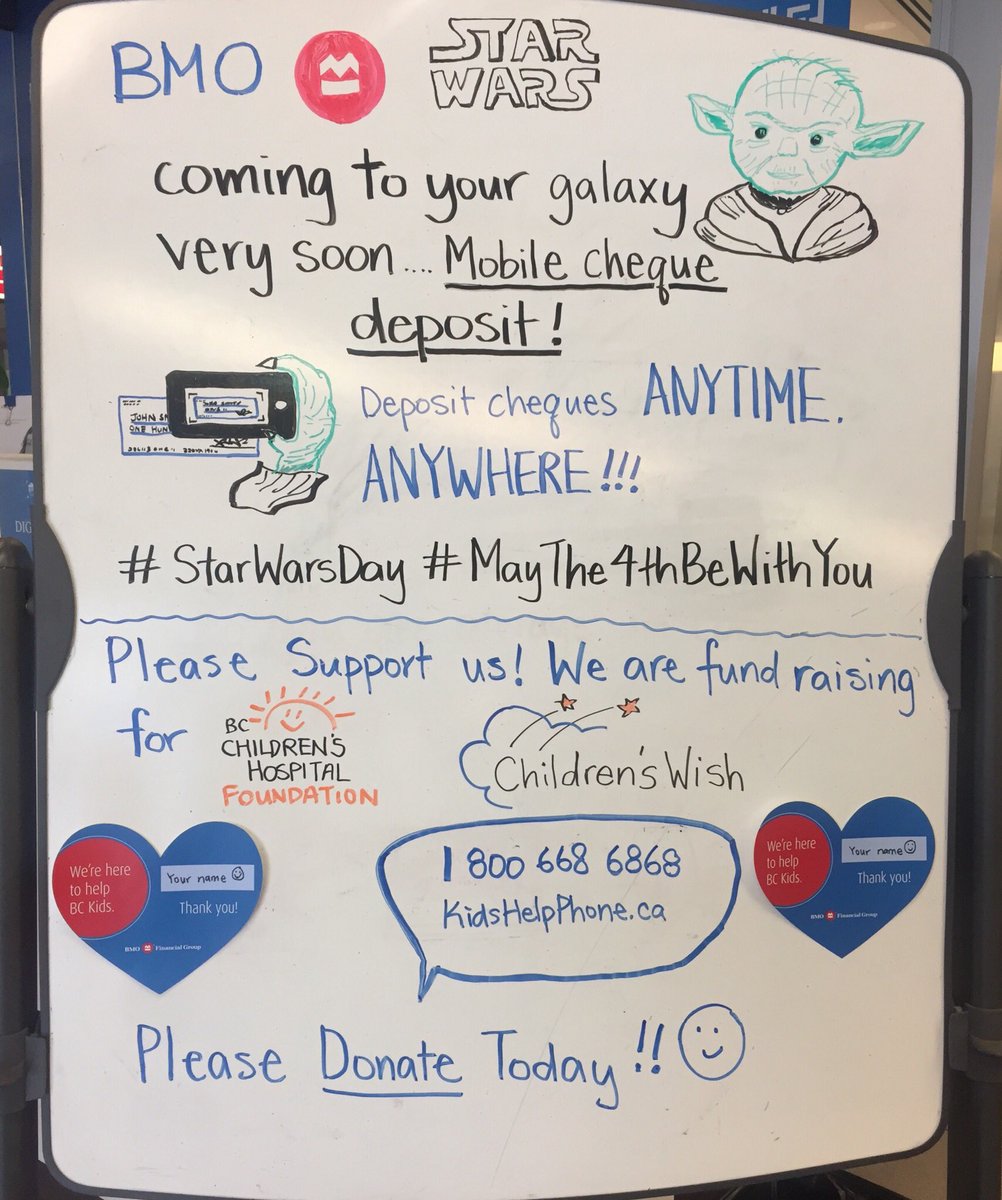 BMO
STAR
WARS
coming to your galaxy
very soon.... Mobile cheque
deposit!
JOHN
ONE HUN
Deposit cheques ANYTIME.
ANYWHERE!!!
#StarWarsDay #MayThe4thBeWithYou
Please Support us! We are fund raising
for
BC
CHILDREN'S
HOSPITAL
FOUNDATION
Children'sWish
We're here
to help
BC Kids.
Your name
Thank you!
BMO Financial Group
1 800 668 6868
KidsHelpPhone.ca
We're here
to help
BC Kids.
Your name
Thank you!
BMO Financial Group
Please Donate Today!!